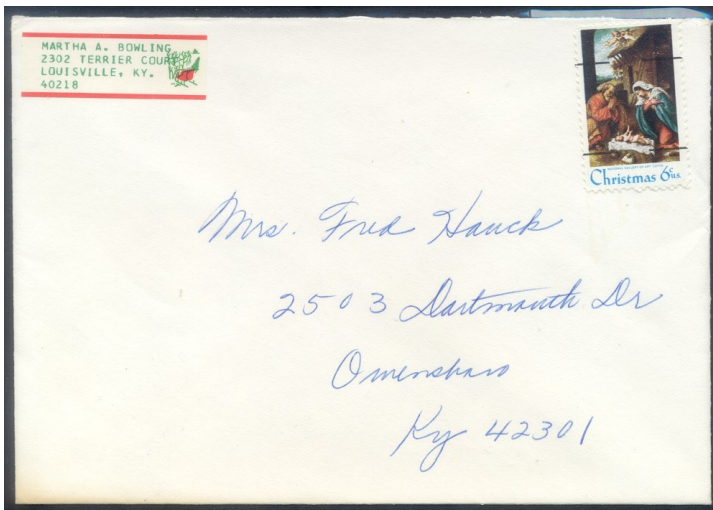 MARTHA A. BOWLING
2302 TERRIER COURT
LOUISVILLE, KY.
40218
Christmas 6c U.S.
Mrs. Fred Hauck
2503 Dartmouth Dr
Owensboro
Ky 42301